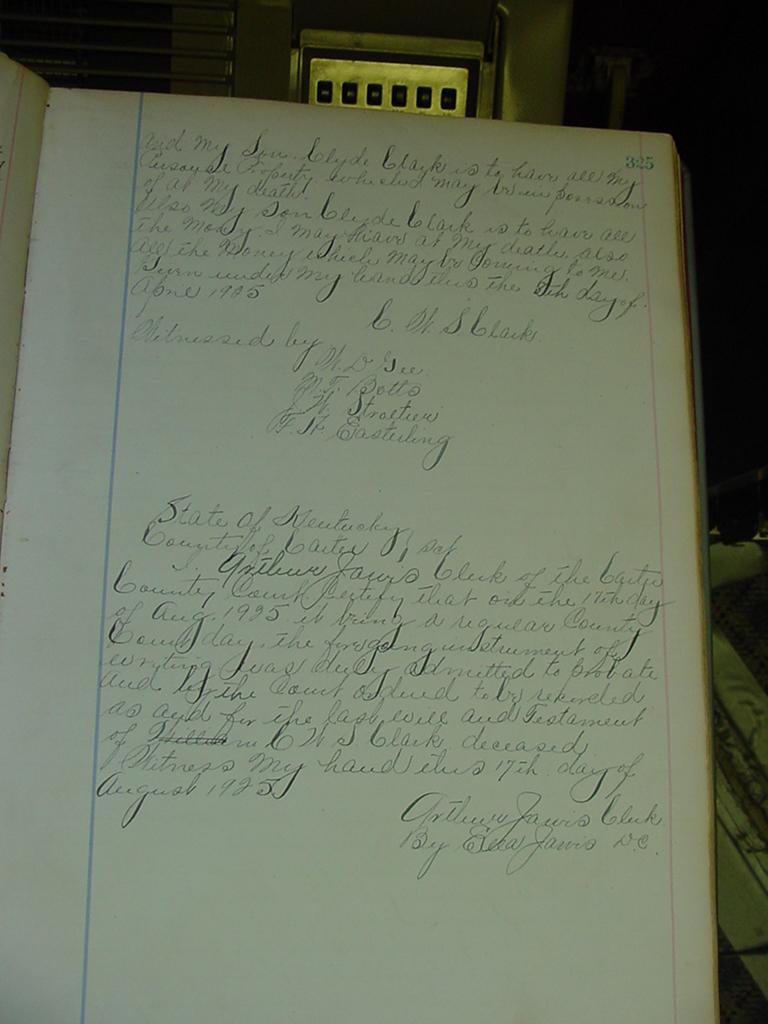 325
and My Son Clyde Clark is to have all My
Personal Property which may be in possession
of at My death.
Also My Son Clyde Clark is to have all
the Money I may have at My death also
all the Money which may be Coming to me.
Given under My hand this the 9th day of
April 1925
C. W. S Clark.
Witnessed by
W. D Gee.
M. T. Botts
J W. Strother
F. H. Easterling
State of Kentucky
County of Carter } sct
I Arthur Jarvis Clerk of the Carter
County Court certify that on the 17th day
of Aug. 1925 it being a regular County
Court day, the foregoing instrument of
writing was duly admitted to probate
and by the Court ordered to be recorded
as and for the last will and Testament
of William C W S. Clark deceased
Witness My hand this 17th day of
August 1925
Arthur Jarvis Clerk
By Ella Jarvis D.C.